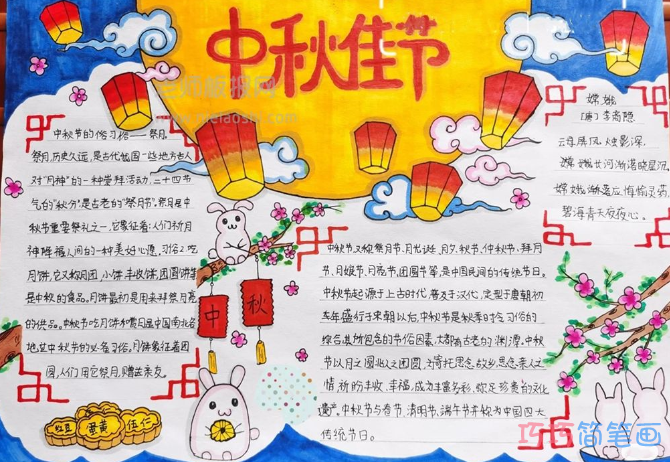 中秋佳节
老师板报网
www.weilaoshi.com
中秋节的俗习俗——祭月
祭月历史久远,是古代我国一些地方古人
对"月神"的一种崇拜活动,二十四节
气的"秋分"是古老的"祭月节"。祭月是中
秋节重要祭礼之一,它象征着:人们祈月
神降福人间的一种美好心愿。习俗2:吃
月饼,它又称月团、小饼、丰收饼、团圆饼等
是中秋的食品。月饼最初是用来拜祭月亮
的供品。中秋节吃月饼和赏月是中国南北各
地过中秋节的必备习俗,月饼象征着团
圆,人们用它祭月,赠送亲友。
红豆
蛋黄
伍仁
中
秋
嫦娥
[唐]李商隐
云母屏风烛影深,
嫦娥长河渐落晓星沉。
嫦娥渐落应悔偷灵药,
碧海青天夜夜心。
中秋节,又称祭月节、月光诞、月夕、秋节、仲秋节、拜月
节、月娘节、月亮节、团圆节等,是中国民间的传统节日。
中秋节起源于上古时代,普及于汉代,定型于唐朝初
年,盛行于宋朝以后。中秋节是秋季时令习俗的
综合,其所包含的节俗因素,大都有古老的渊源。中秋节
以月之圆兆人之团圆,为寄托思念故乡,思念亲人之
情,祈盼丰收、幸福,成为丰富多彩、弥足珍贵的文化
遗产。中秋节与春节、清明节、端午节并称为中国四大
传统节日。
巧巧简笔画